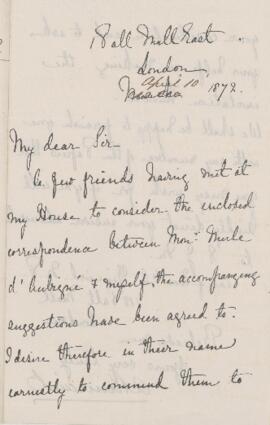 18 all Mall East
London,
April 10
March 1872.
My dear Sir-
A few friends having met at
my House to consider the enclosed
correspondence between Mon: Merle
d'Aubigné & myself, the accompanying
suggestions have been agreed to.
I desire therefore in their name
earnestly to commend them to